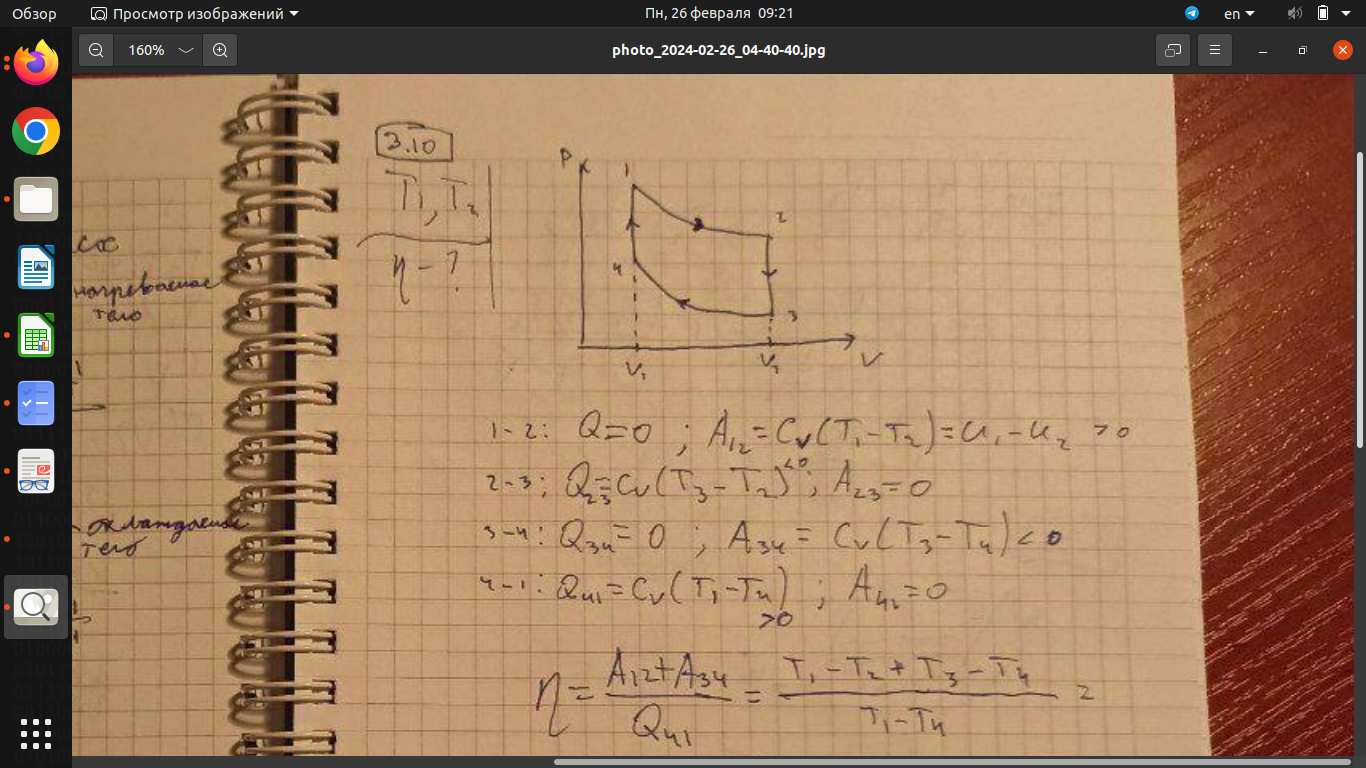 Обзор
Просмотр изображений
Пн, 26 февраля 09:21
en
160%
photo_2024-02-26_04-40-40.jpg
нагреваемое
тело
тело
3.10
T₁, T₂
η - ?
P
1
2
4
3
V₁
V₂
V
1-2: Q=0 ; A₁₂ = Cᵥ(T₁-T₂) = U₁-U₂ >0
2-3; Q₂₃=Cᵥ(T₃-T₂)<0; A₂₃=0
3-4: Q₃₄=0 ; A₃₄= Cᵥ(T₃-T₄)<0
4-1: Q₄₁=Cᵥ(T₁-T₄) ; A₄₁=0
>0
η = (A₁₂+A₃₄)/Q₄₁ = (T₁-T₂+T₃-T₄)/(T₁-T₄) =